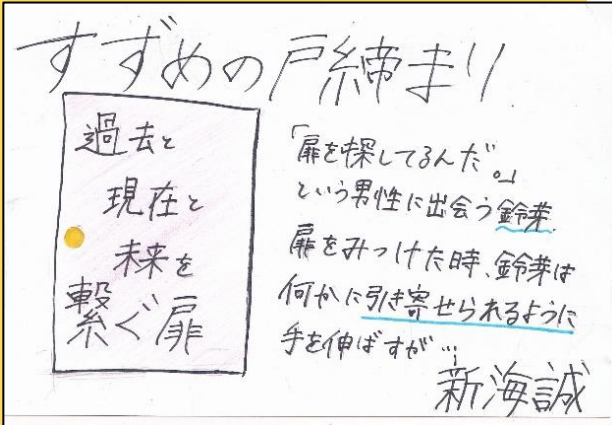 すずめの戸締まり
過去と
現在と
未来を
繋ぐ扉
「扉を探してるんだ。」
という男性に出会う鈴芽
扉をみつけた時、鈴芽は
何かに引き寄せられるように
手を伸ばすが…
新海誠